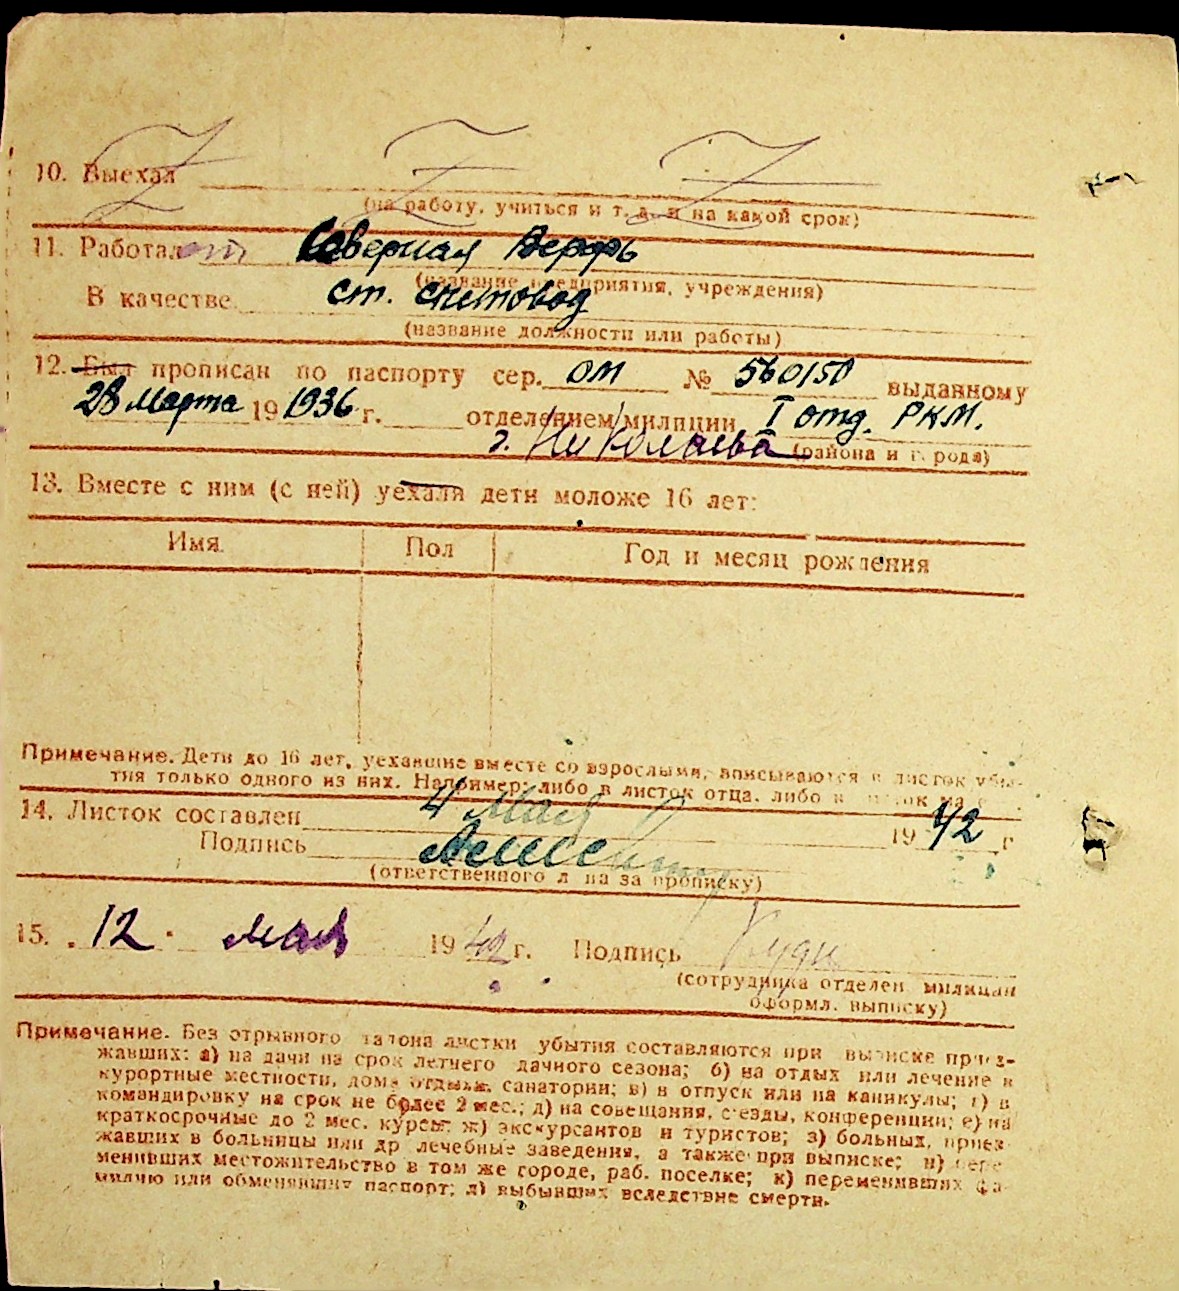 10. Выехал
(на работу, учиться и т. д. и на какой срок)
11. Работал Северная Верфь
(название предприятия, учреждения)
В качестве ст. счетовод
(название должности или работы)
12. Был прописан по паспорту сер. ОМ № 560150 выданному
28 Марта 19 1936 г. отделением милиции I отд. РКМ.
г. Николаева (района и города)
13. Вместе с ним (с ней) уехали дети моложе 16 лет:
Имя Пол Год и месяц рождения
Примечание. Дети до 16 лет, уехавшие вместе со взрослыми, вписываются в листок убы-
тия только одного из них. Например: либо в листок отца, либо в листок ма
14. Листок составлен 4 Мая 19 42 г
Подпись
(ответственного лица за прописку)
15. 12 мая 19 42 г. Подпись
(сотрудника отделен. милиции
оформл. выписку)
Примечание. Без отрывного талона листки убытия составляются при выписке приез-
жавших: а) на дачи на срок летнего дачного сезона; б) на отдых или лечение в
курортные местности, дома отдыха, санатории; в) в отпуск или на каникулы; г) в
командировку на срок не более 2 мес.; д) на совещания, съезды, конференции; е) на
краткосрочные до 2 мес. курсы; ж) экскурсантов и туристов; з) больных, приез-
жавших в больницы или др лечебные заведения, а также при выписке; и) пере-
менивших местожительство в том же городе, раб. поселке; к) переменивших фа-
милию или обменявших паспорт; л) выбывших вследствие смерти.